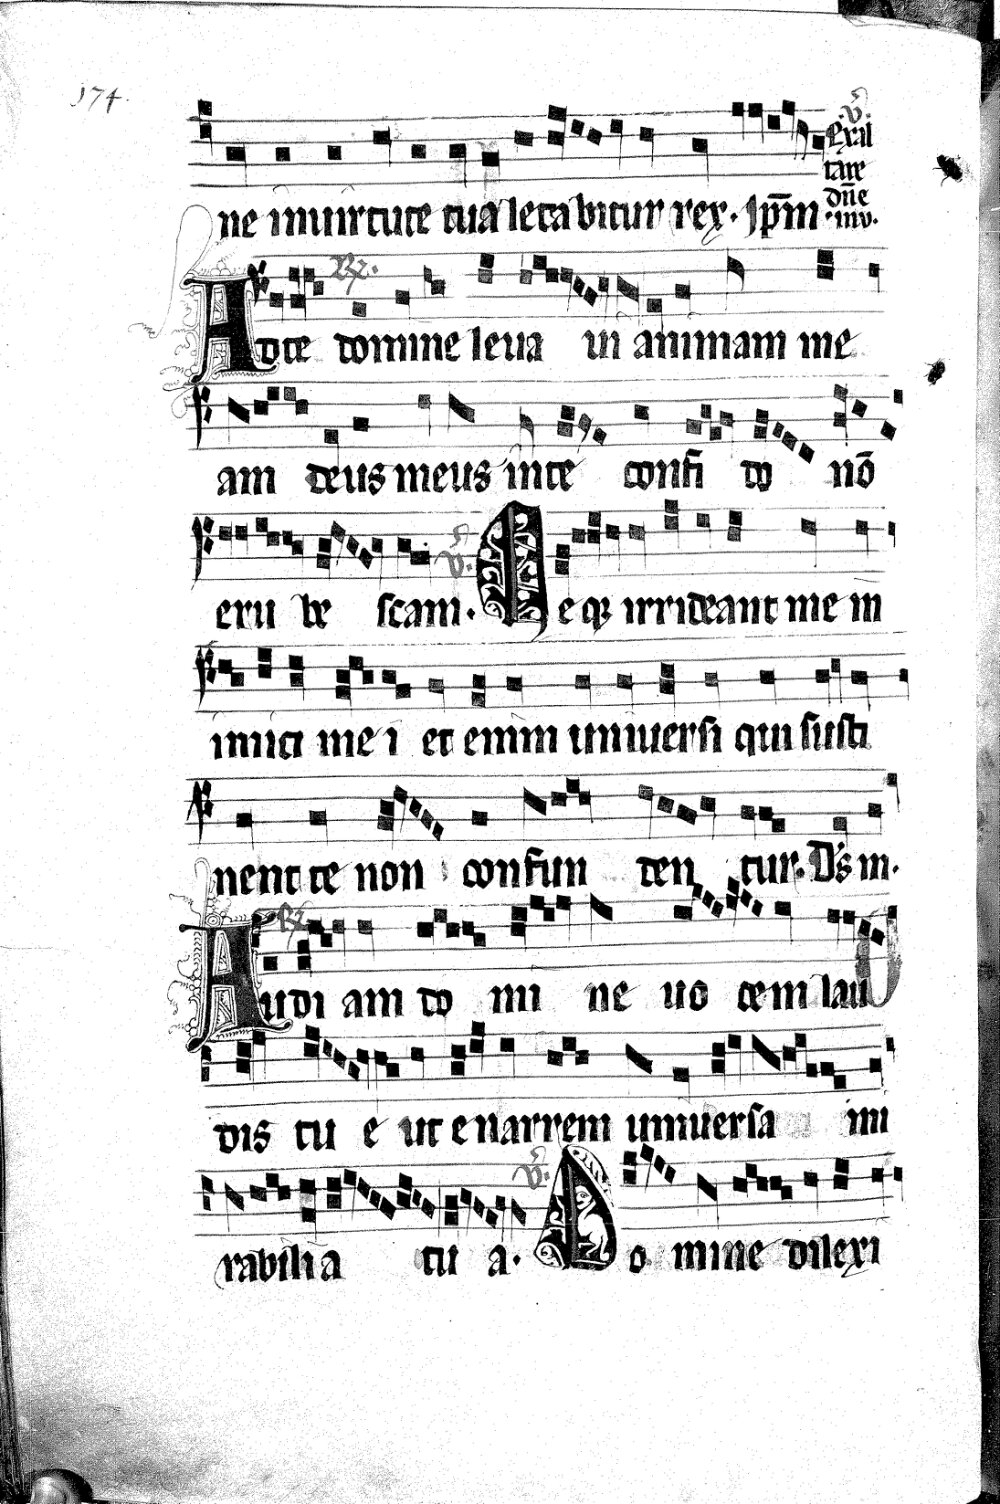 174.
ne inuirtute tua letabitur rex. ip̄m
℣.
Exal
tare
dñe
inv.
℟.
Adte domine leua ui animam me
am deus meus inte confi do nō
eru be scam. ℣. Neqꝫ irrideant me in
imici me i et enim uniuersi qui susti
nent te non confun den tur. Ds̄ m.
℟.
Audi am do mi ne uo cem lau
dis tu e ut enarrem uniuersa mi
rabilia tu a. ℣. Do mine dilexi